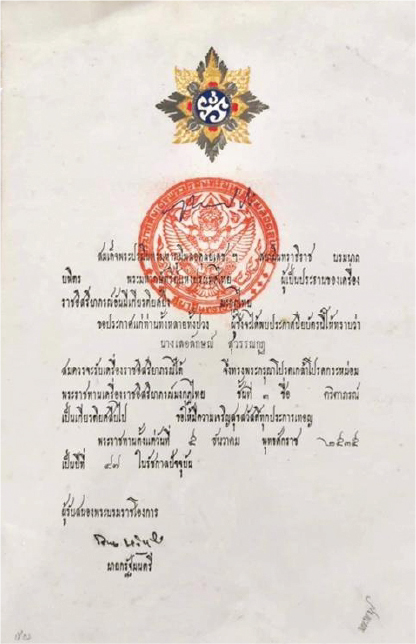 สมเด็จพระปรมินทรมหาภูมิพลอดุลยเดช ฯ สยามินทราธิราช บรมนาถ
บพิตร ผู้เป็นประธานของเครื่อง
ราชอิสริยาภรณ์อันมีเกียรติยศยิ่ง
ขอประกาศแก่ท่านทั้งหลายทั้งปวง ผู้ซึ่งได้พบประกาศนียบัตรนี้ให้ทราบว่า
นางเตือดักษณ์ สุวรรณกูฏ
สมควรจะรับเครื่องราชอิสริยาภรณ์ได้ จึงทรงพระกรุณาโปรดเกล้าโปรดกระหม่อม
พระราชทานเครื่องราชอิสริยาภรณ์มงกุฎไทย ชั้นที่ ๓ ชื่อ ตริตาภรณ์
เป็นเกียรติยศสืบไป ขอให้มีความเจริญสุขสวัสดิ์ทุกประการเทอญ
พระราชทานตั้งแต่วันที่ ๕ ธันวาคม พุทธศักราช ๒๕๓๕
เป็นปีที่ ๔๗ ในรัชกาลปัจจุบัน
ผู้รับสนองพระบรมราชโองการ
นายกรัฐมนตรี